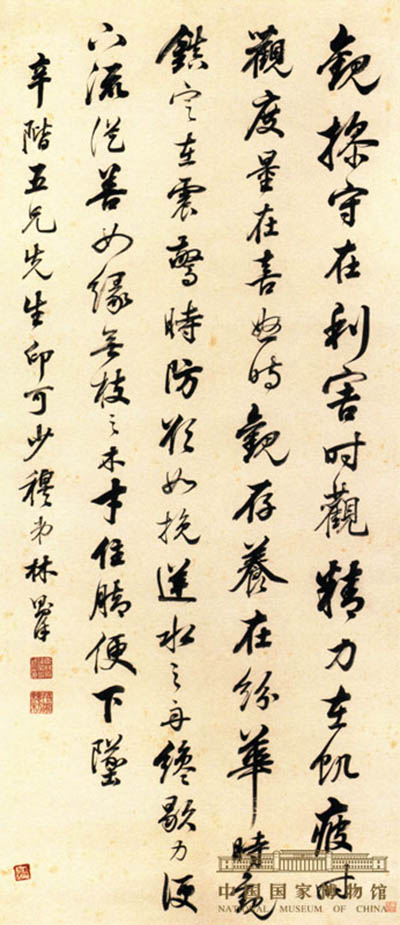 觀操守在利害时觀精力在飢疲时
觀度量在喜怒时觀存養在紛華時觀
鎮定在震驚時防欲如挽逆水之舟纔歇力便
下流從善如緣無枝之木才住脚便下墜
辛階五兄先生印可少穆弟林則徐
中国国家博物馆
NATIONAL MUSEUM OF CHINA